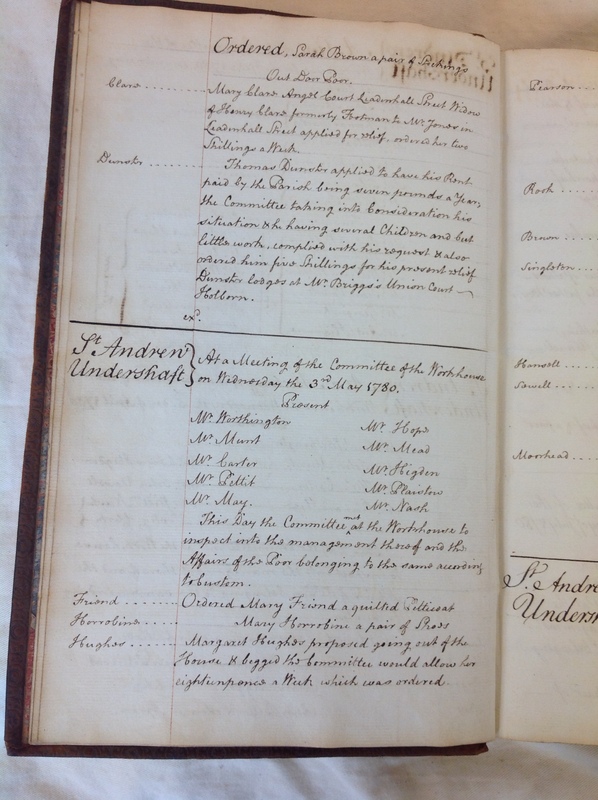 Ordered, Sarah Brown a pair of Stockings
Out Door Poor.
Clare ........ Mary Clare Angel Court Leadenhall Street Widow
of Henry Clare formerly Footman to Mr. Jones in
Leadenhall Street applied for relief, ordered her two
Shillings a Week.
Dunster ........ Thomas Dunster applied to have his Rent
paid by the Parish being seven pounds a Year,
the Committee taking into Consideration his
situation & he having several Children and but
little work, complied with his request & also
ordered him five Shillings for his present relief
Dunster lodges at Mr. Briggs's Union Court
Holborn.
exd.
St. Andrew
Undershaft
At a Meeting of the Committee of the Workhouse
on Wednesday the 3rd May 1780.
Present
Mr. Worthington Mr. Hope
Mr. Munt Mr. Mead
Mr. Carter Mr. Higden
Mr. Pettit Mr. Plaistow
Mr. May. Mr. Nash
This Day the Committee met at the Workhouse to
inspect into the management thereof and the
Affairs of the Poor belonging to the same according
to Custom.
Friend ........ Ordered Mary Friend a quilted Petticoat
Horrobine ..... Mary Horrobine a pair of Shoes
Hughes ....... Margaret Hughes proposed going out of the
House & begged the Committee would allow her
eighteenpence a Week which was ordered
Pearson ....
Rook ....
Brown ....
Singleton ...
Hansell ....
Sewell ....
Moorhead ....
St. Andre
Undersh